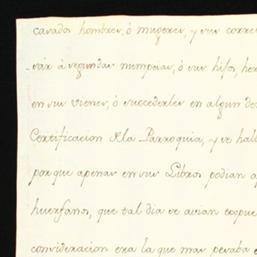 casados hombres, ó mugeres, y sus corre
sár à segundas nupcias, ó sus hijos, her
en sus vienes, ó succederles en algun de
Certificacion de la Parroquia, y se hall
porque apenas en sus Libros podian a
huerfanos, que tal dia se avian expue
consideracion era la que mas pesaba e